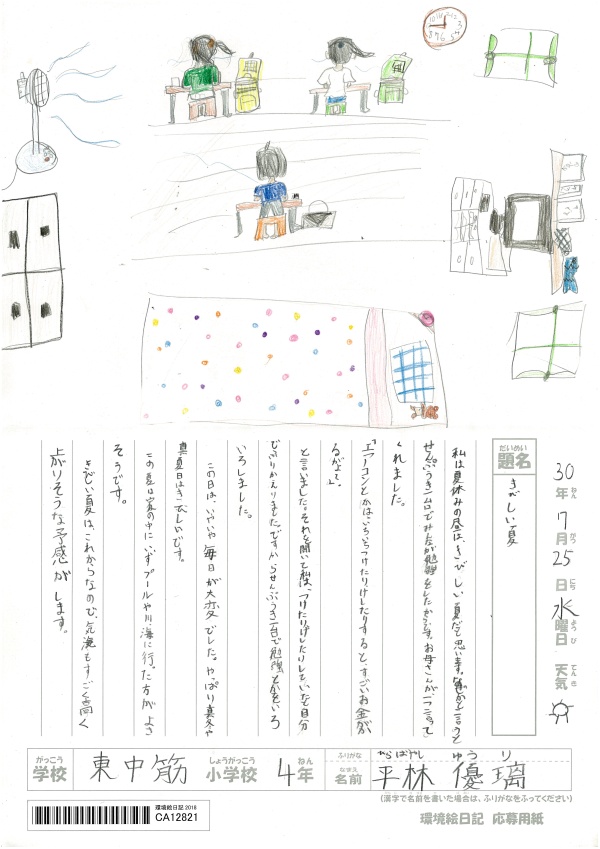 30年ねん7月がつ25日にち水曜日ようび 天気てんき
題名だいめい
きびしい夏
私は夏休みの昼は、きびしい夏だと思います。なぜかと言うと
せんぷうき一台でみんなが勉強をしたからです。お母さんが一つ言って
くれました。
「エアコンとかは、いろいろつけたりけしたりすると、すごいお金が
かるがよ。」
と言いました。それを聞いて私は、つけたりけしたりしていたなと自分
でふりかえりました。ですからせんぷうき一台で勉強とかをいろ
いろしました。
この日は、いやいや毎日が大変でした。やっぱり真冬や
真夏日はきびしいです。
この夏は家の中にいずプールや川海に行った方がよさ
そうです。
きびしい夏は、これからなので、気温もすごく高く
上がりそうな予感がします。
学校がっこう 東中筋 小学校しょうがっこう 4年ねん ふりがな 名前なまえ 平林 優璃 ばやし ゆうり
(漢字で名前を書いた場合は、ふりがなをふってください)
環境絵日記 2018
CA12821
環境絵日記 応募用紙